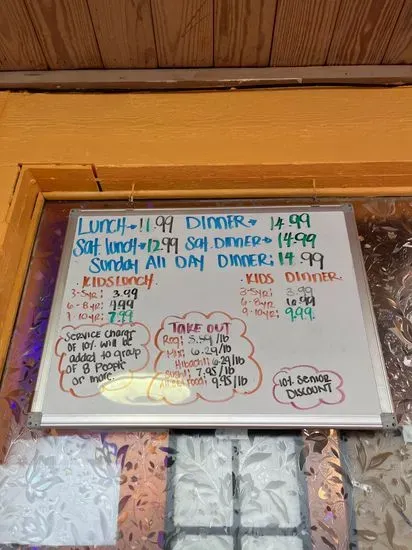 LUNCH → 11.99 DINNER → 14.99
Sat. lunch → 12.99 Sat. DINNER → 14.99
Sunday All DAY DINNER: 14.99
KIDS LUNCH
3-5yr: 3.99
6-8yr: 4.99
7.99
KIDS DINNER
3-5yr: 3.99
6-8yr: 6.99
9-10yr: 9.99
SERVICE CHARGE
OF 10% WILL BE
added to group
of 8 People
or more.
TAKE OUT
Reg: 5.59/lb
Mix: 6.29/lb
Hibachi: 6.29/lb
Sushi: 7.95/lb
Food: 9.95/lb
10% SENIOR
DISCOUNT